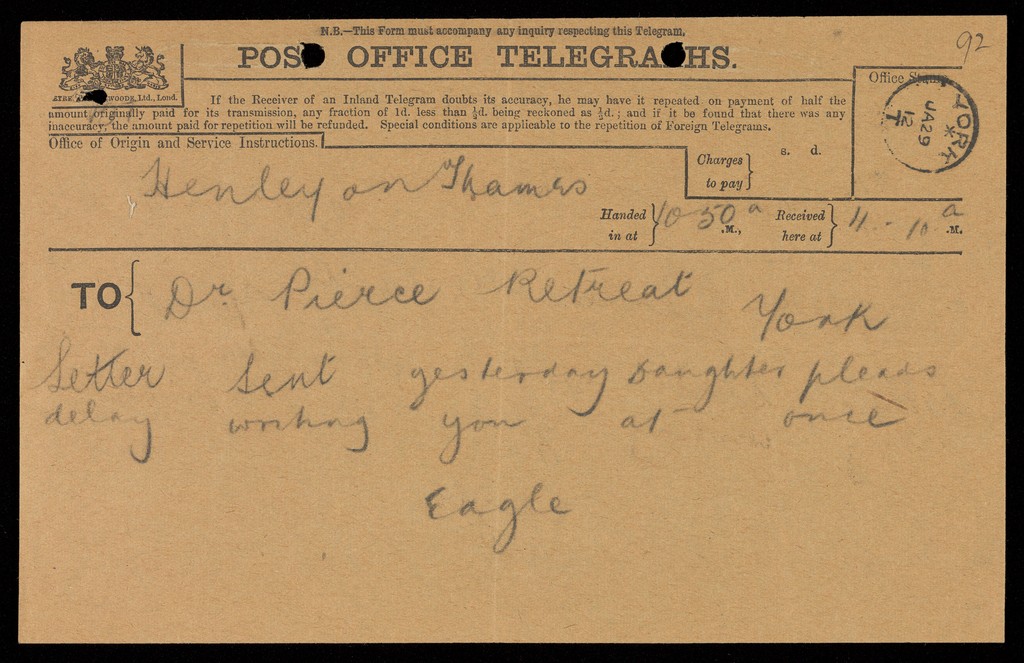 N.B.—This Form must accompany any inquiry respecting this Telegram.
POST OFFICE TELEGRAPHS.
92
Office Stamp.
YORK
JA29
12
T
Ltd., Lond.
If the Receiver of an Inland Telegram doubts its accuracy, he may have it repeated on payment of half the
amount originally paid for its transmission, any fraction of 1d. less than ½d. being reckoned as ½d.; and if it be found that there was any
inaccuracy, the amount paid for repetition will be refunded. Special conditions are applicable to the repetition of Foreign Telegrams.
Office of Origin and Service Instructions.
Charges to pay
s. d.
Henley on Thames
Handed in at 10 50 a .M.,
Received here at 11 - 10 a .M.
TO Dr. Pierce Retreat
York
Letter sent yesterday Daughter pleads
delay writing you at once
Eagle